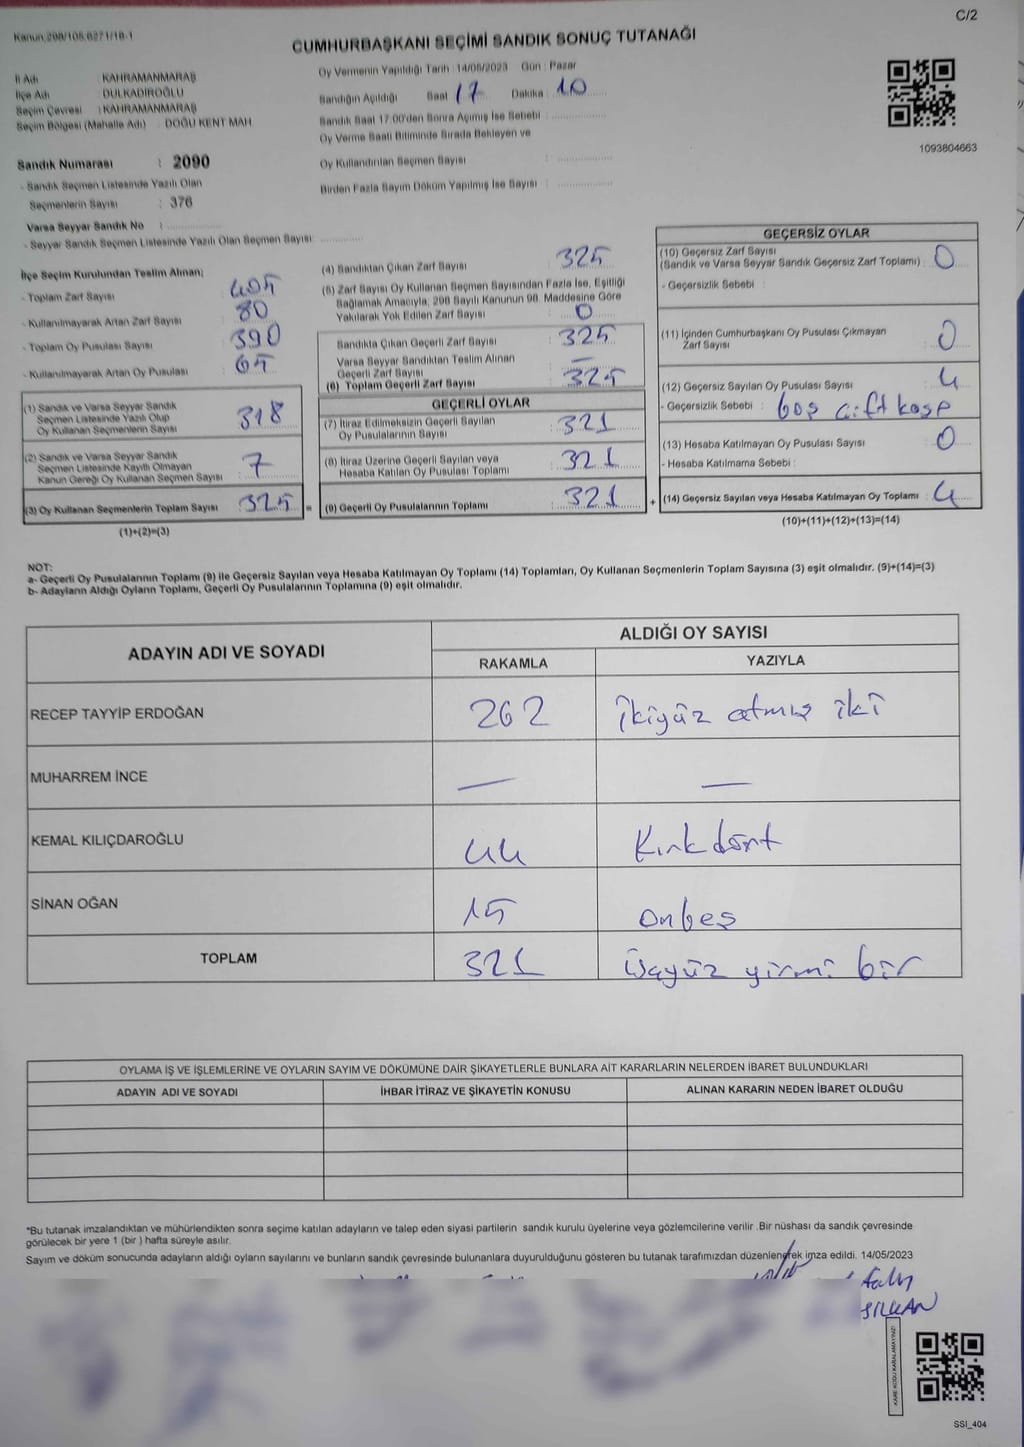 C/2
Kanun 298/105.6271/18-1
CUMHURBAŞKANI SEÇİMİ SANDIK SONUÇ TUTANAĞI
İl Adı : KAHRAMANMARAŞ
İlçe Adı : DULKADİROĞLU
Seçim Çevresi : KAHRAMANMARAŞ
Seçim Bölgesi (Mahalle Adı) : DOĞU KENT MAH.
Oy Vermenin Yapıldığı Tarih : 14/05/2023 Gün : Pazar
Sandığın Açıldığı Saat 17 Dakika : 10
Sandık Saat 17:00'den Sonra Açılmış İse Sebebi :
Oy Verme Saati Bitiminde Sırada Bekleyen ve
Oy Kullandırılan Seçmen Sayısı :
Birden Fazla Sayım Döküm Yapılmış İse Sayısı :
1093804663
Sandık Numarası : 2090
- Sandık Seçmen Listesinde Yazılı Olan
Seçmenlerin Sayısı : 376
Varsa Seyyar Sandık No :
- Seyyar Sandık Seçmen Listesinde Yazılı Olan Seçmen Sayısı:
İlçe Seçim Kurulundan Teslim Alınan;
- Toplam Zarf Sayısı 405
- Kullanılmayarak Artan Zarf Sayısı 80
- Toplam Oy Pusulası Sayısı 390
- Kullanılmayarak Artan Oy Pusulası 65
(1) Sandık ve Varsa Seyyar Sandık
Seçmen Listesinde Yazılı Olup
Oy Kullanan Seçmenlerin Sayısı 318
(2) Sandık ve Varsa Seyyar Sandık
Seçmen Listesinde Kayıtlı Olmayan
Kanun Gereği Oy Kullanan Seçmen Sayısı 7
(3) Oy Kullanan Seçmenlerin Toplam Sayısı 325 =
(1)+(2)=(3)
(4) Sandıktan Çıkan Zarf Sayısı 325
(5) Zarf Sayısı Oy Kullanan Seçmen Sayısından Fazla İse, Eşitliği
Sağlamak Amacıyla, 298 Sayılı Kanunun 98. Maddesine Göre
Yakılarak Yok Edilen Zarf Sayısı 0
Sandıkta Çıkan Geçerli Zarf Sayısı : 325
Varsa Seyyar Sandıktan Teslim Alınan
Geçerli Zarf Sayısı : —
(6) Toplam Geçerli Zarf Sayısı : 325
GEÇERLİ OYLAR
(7) İtiraz Edilmeksizin Geçerli Sayılan
Oy Pusulalarının Sayısı : 321
(8) İtiraz Üzerine Geçerli Sayılan veya
Hesaba Katılan Oy Pusulası Toplamı : 321
(9) Geçerli Oy Pusulalarının Toplamı : 321 +
GEÇERSİZ OYLAR
(10) Geçersiz Zarf Sayısı
(Sandık ve Varsa Seyyar Sandık Geçersiz Zarf Toplamı) : 0
- Geçersizlik Sebebi :
(11) İçinden Cumhurbaşkanı Oy Pusulası Çıkmayan
Zarf Sayısı : 0
(12) Geçersiz Sayılan Oy Pusulası Sayısı : 4
- Geçersizlik Sebebi : boş çift kaşe
(13) Hesaba Katılmayan Oy Pusulası Sayısı : 0
- Hesaba Katılmama Sebebi :
(14) Geçersiz Sayılan veya Hesaba Katılmayan Oy Toplamı : 4
(10)+(11)+(12)+(13)=(14)
NOT:
a- Geçerli Oy Pusulalarının Toplamı (9) ile Geçersiz Sayılan veya Hesaba Katılmayan Oy Toplamı (14) Toplamları, Oy Kullanan Seçmenlerin Toplam Sayısına (3) eşit olmalıdır. (9)+(14)=(3)
b- Adayların Aldığı Oyların Toplamı, Geçerli Oy Pusulalarının Toplamına (9) eşit olmalıdır.
ADAYIN ADI VE SOYADI ALDIĞI OY SAYISI
RAKAMLA YAZIYLA
RECEP TAYYİP ERDOĞAN 262 ikiyüz atmış iki
MUHARREM İNCE — —
KEMAL KILIÇDAROĞLU 44 Kırkdört
SİNAN OĞAN 15 onbeş
TOPLAM 321 üçyüz yirmi bir
OYLAMA İŞ VE İŞLEMLERİNE VE OYLARIN SAYIM VE DÖKÜMÜNE DAİR ŞİKAYETLERLE BUNLARA AİT KARARLARIN NELERDEN İBARET BULUNDUKLARI
ADAYIN ADI VE SOYADI İHBAR İTİRAZ VE ŞİKAYETİN KONUSU ALINAN KARARIN NEDEN İBARET OLDUĞU
*Bu tutanak imzalandıktan ve mühürlendikten sonra seçime katılan adayların ve talep eden siyasi partilerin sandık kurulu üyelerine veya gözlemcilerine verilir .Bir nüshası da sandık çevresinde
görülecek bir yere 1 (bir ) hafta süreyle asılır.
Sayım ve döküm sonucunda adayların aldığı oyların sayılarını ve bunların sandık çevresinde bulunanlara duyurulduğunu gösteren bu tutanak tarafımızdan düzenlenerek imza edildi. 14/05/2023
KARE KODU KARALAMAYINIZ!
SSI_404